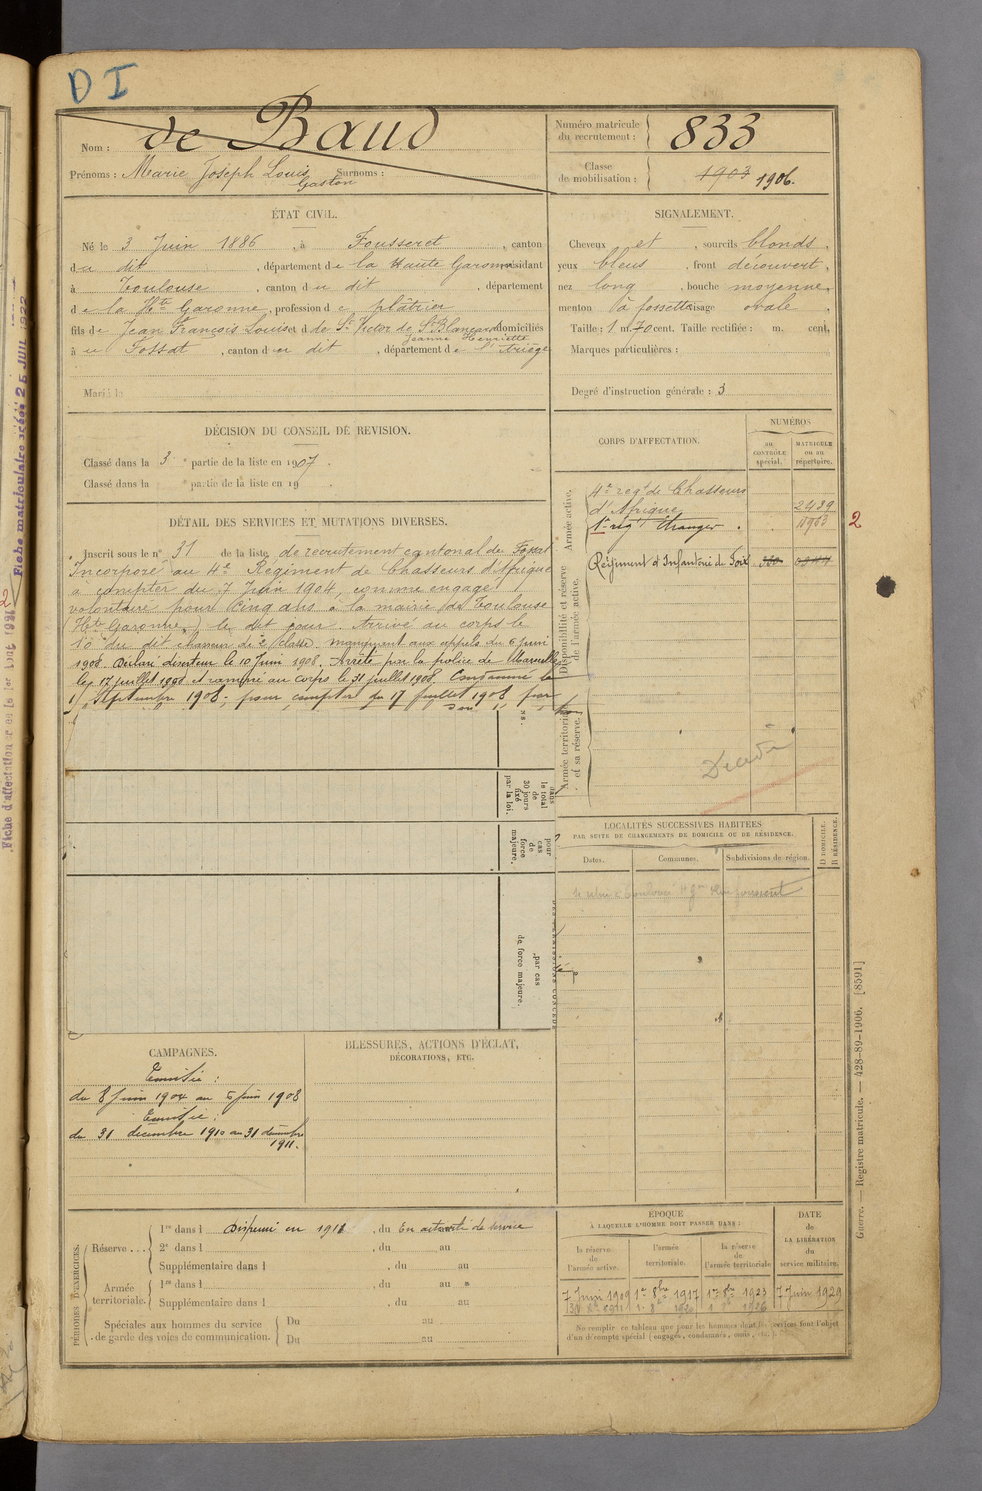 D I
Nom : de Baud
Prénoms : Marie Joseph Louis Gaston Surnoms :
Numéro matricule du recrutement : 833
Classe de mobilisation : 1903 1906.
ÉTAT CIVIL.
Né le 3 Juin 1886, à Fousseret, canton
du dit, département de la Haute Garonne, résidant
à Toulouse, canton du dit, département
de la Hte Garonne, profession de plâtrier
fils de Jean François Louis et de St Victor de St Blancard Jeanne Henriette domiciliés
à u Fossat, canton du dit, département de l'Ariège
Marié le
SIGNALEMENT.
Cheveux et, sourcils blonds,
yeux bleus, front découvert,
nez long, bouche moyenne,
menton à fossette, visage ovale
Taille : 1 m. 70 cent. Taille rectifiée : m. cent.
Marques particulières :
Degré d'instruction générale : 3
DÉCISION DU CONSEIL DE REVISION.
Classé dans la 3e partie de la liste en 1907.
Classé dans la e partie de la liste en 19 .
DÉTAIL DES SERVICES ET MUTATIONS DIVERSES.
Inscrit sous le n° 31 de la liste de recrutement cantonal de
Incorporé au 4e Régiment de Chasseurs d'Afrique
à compter du 7 Juin 1904, comme engagé
volontaire pour cinq ans à la mairie de Toulouse
(Hte Garonne) le dit jour. Arrivé au corps le
10 du dit chasseur de 2e classe. manquant aux appels du 6 juin
1908. Déclaré déserteur le 10 Juin 1908. Arrêté par la police de Marseille
le 17 juillet 1908 et ramené au corps le 31 juillet 1908. Condamné le
1 Septembre 1908, pour compter du 17 juillet 1908 par
CORPS D'AFFECTATION.
NUMÉROS
AU CONTRÔLE spécial.
MATRICULE ou au répertoire.
Armée active.
4e régt de Chasseurs
d'Afrique 2439
1er régt Etranger 11963
2
Disponibilité et réserve de l'armée active.
Régiment d'Infanterie de Foix
Armée territoriale et sa réserve.
dans le total de 30 jours fixé par la loi.
pour cas de force majeure.
par cas de force majeure.
LOCALITÉS SUCCESSIVES HABITÉES
PAR SUITE DE CHANGEMENTS DE DOMICILE OU DE RÉSIDENCE.
Dates.
Communes.
Subdivisions de région.
D DOMICILE.
R RÉSIDENCE.
CAMPAGNES.
Tunisie :
du 8 Juin 1904 au 5 juin 1908
Tunisie :
du 31 décembre 1910 au 31 décembre
1911.
BLESSURES, ACTIONS D'ÉCLAT,
DÉCORATIONS, ETC.
PÉRIODES D'EXERCICES.
Réserve ...
1re dans l Dispensé en 1911, du En activité de service
2e dans l , du au
Supplémentaire dans l , du au
Armée territoriale.
1re dans l , du au
Supplémentaire dans l , du au
Spéciales aux hommes du service de garde des voies de communication.
Du au
Du au
ÉPOQUE
À LAQUELLE L'HOMME DOIT PASSER DANS :
la réserve de l'armée active.
l'armée territoriale.
la réserve de l'armée territoriale
DATE
de
LA LIBÉRATION
du
service militaire.
7 Juin 1909
1er 8bre 1917
1er 8bre 1923
7 Juin 1929
Ne remplir ce tableau que pour les hommes dont les services font l'objet
d'un décompte spécial (engagés, condamnés, omis, etc.).
Guerre. — Registre matricule. — 428-89-1906. [8591]
Fiche matriculaire créée 25 JUIL 1922